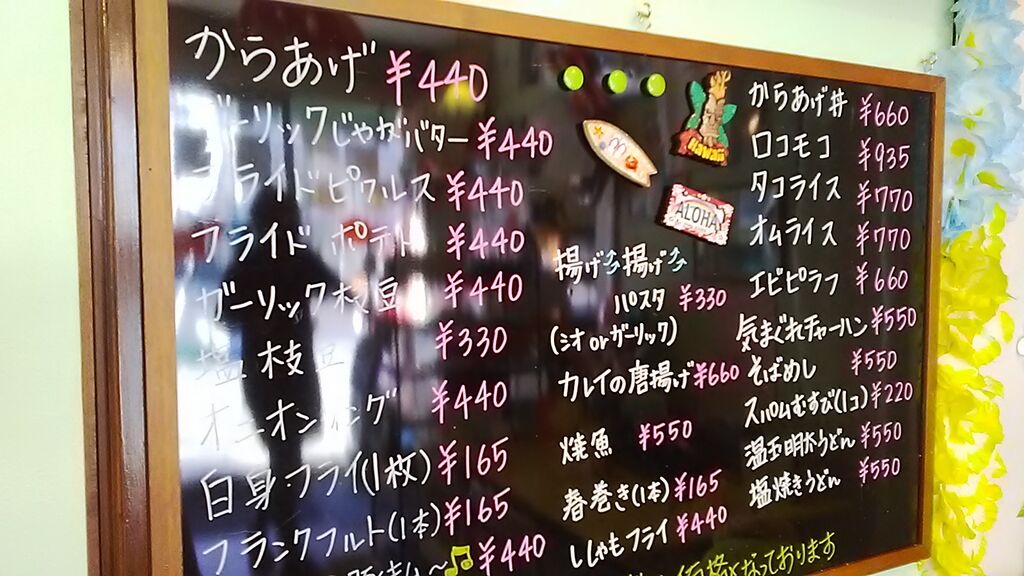 からあげ ¥440
ガーリックじゃがバター ¥440
フライドピクルス ¥440
フライドポテト ¥440
ガーリック枝豆 ¥440
塩枝豆 ¥330
オニオンリング ¥440
白身フライ(1枚) ¥165
フランクフルト(1本) ¥165
¥440
HAWAII
ALOHA
揚げ揚げ
パスタ ¥330
(シオorガーリック)
カレイの唐揚げ ¥660
焼魚 ¥550
春巻き(1本) ¥165
ししゃもフライ ¥440
からあげ丼 ¥660
ロコモコ ¥935
タコライス ¥770
オムライス ¥770
エビピラフ ¥660
気まぐれチャーハン ¥550
そばめし ¥550
スパムむすび(1コ) ¥220
温玉明水うどん ¥550
塩焼きうどん ¥550
価格となっております